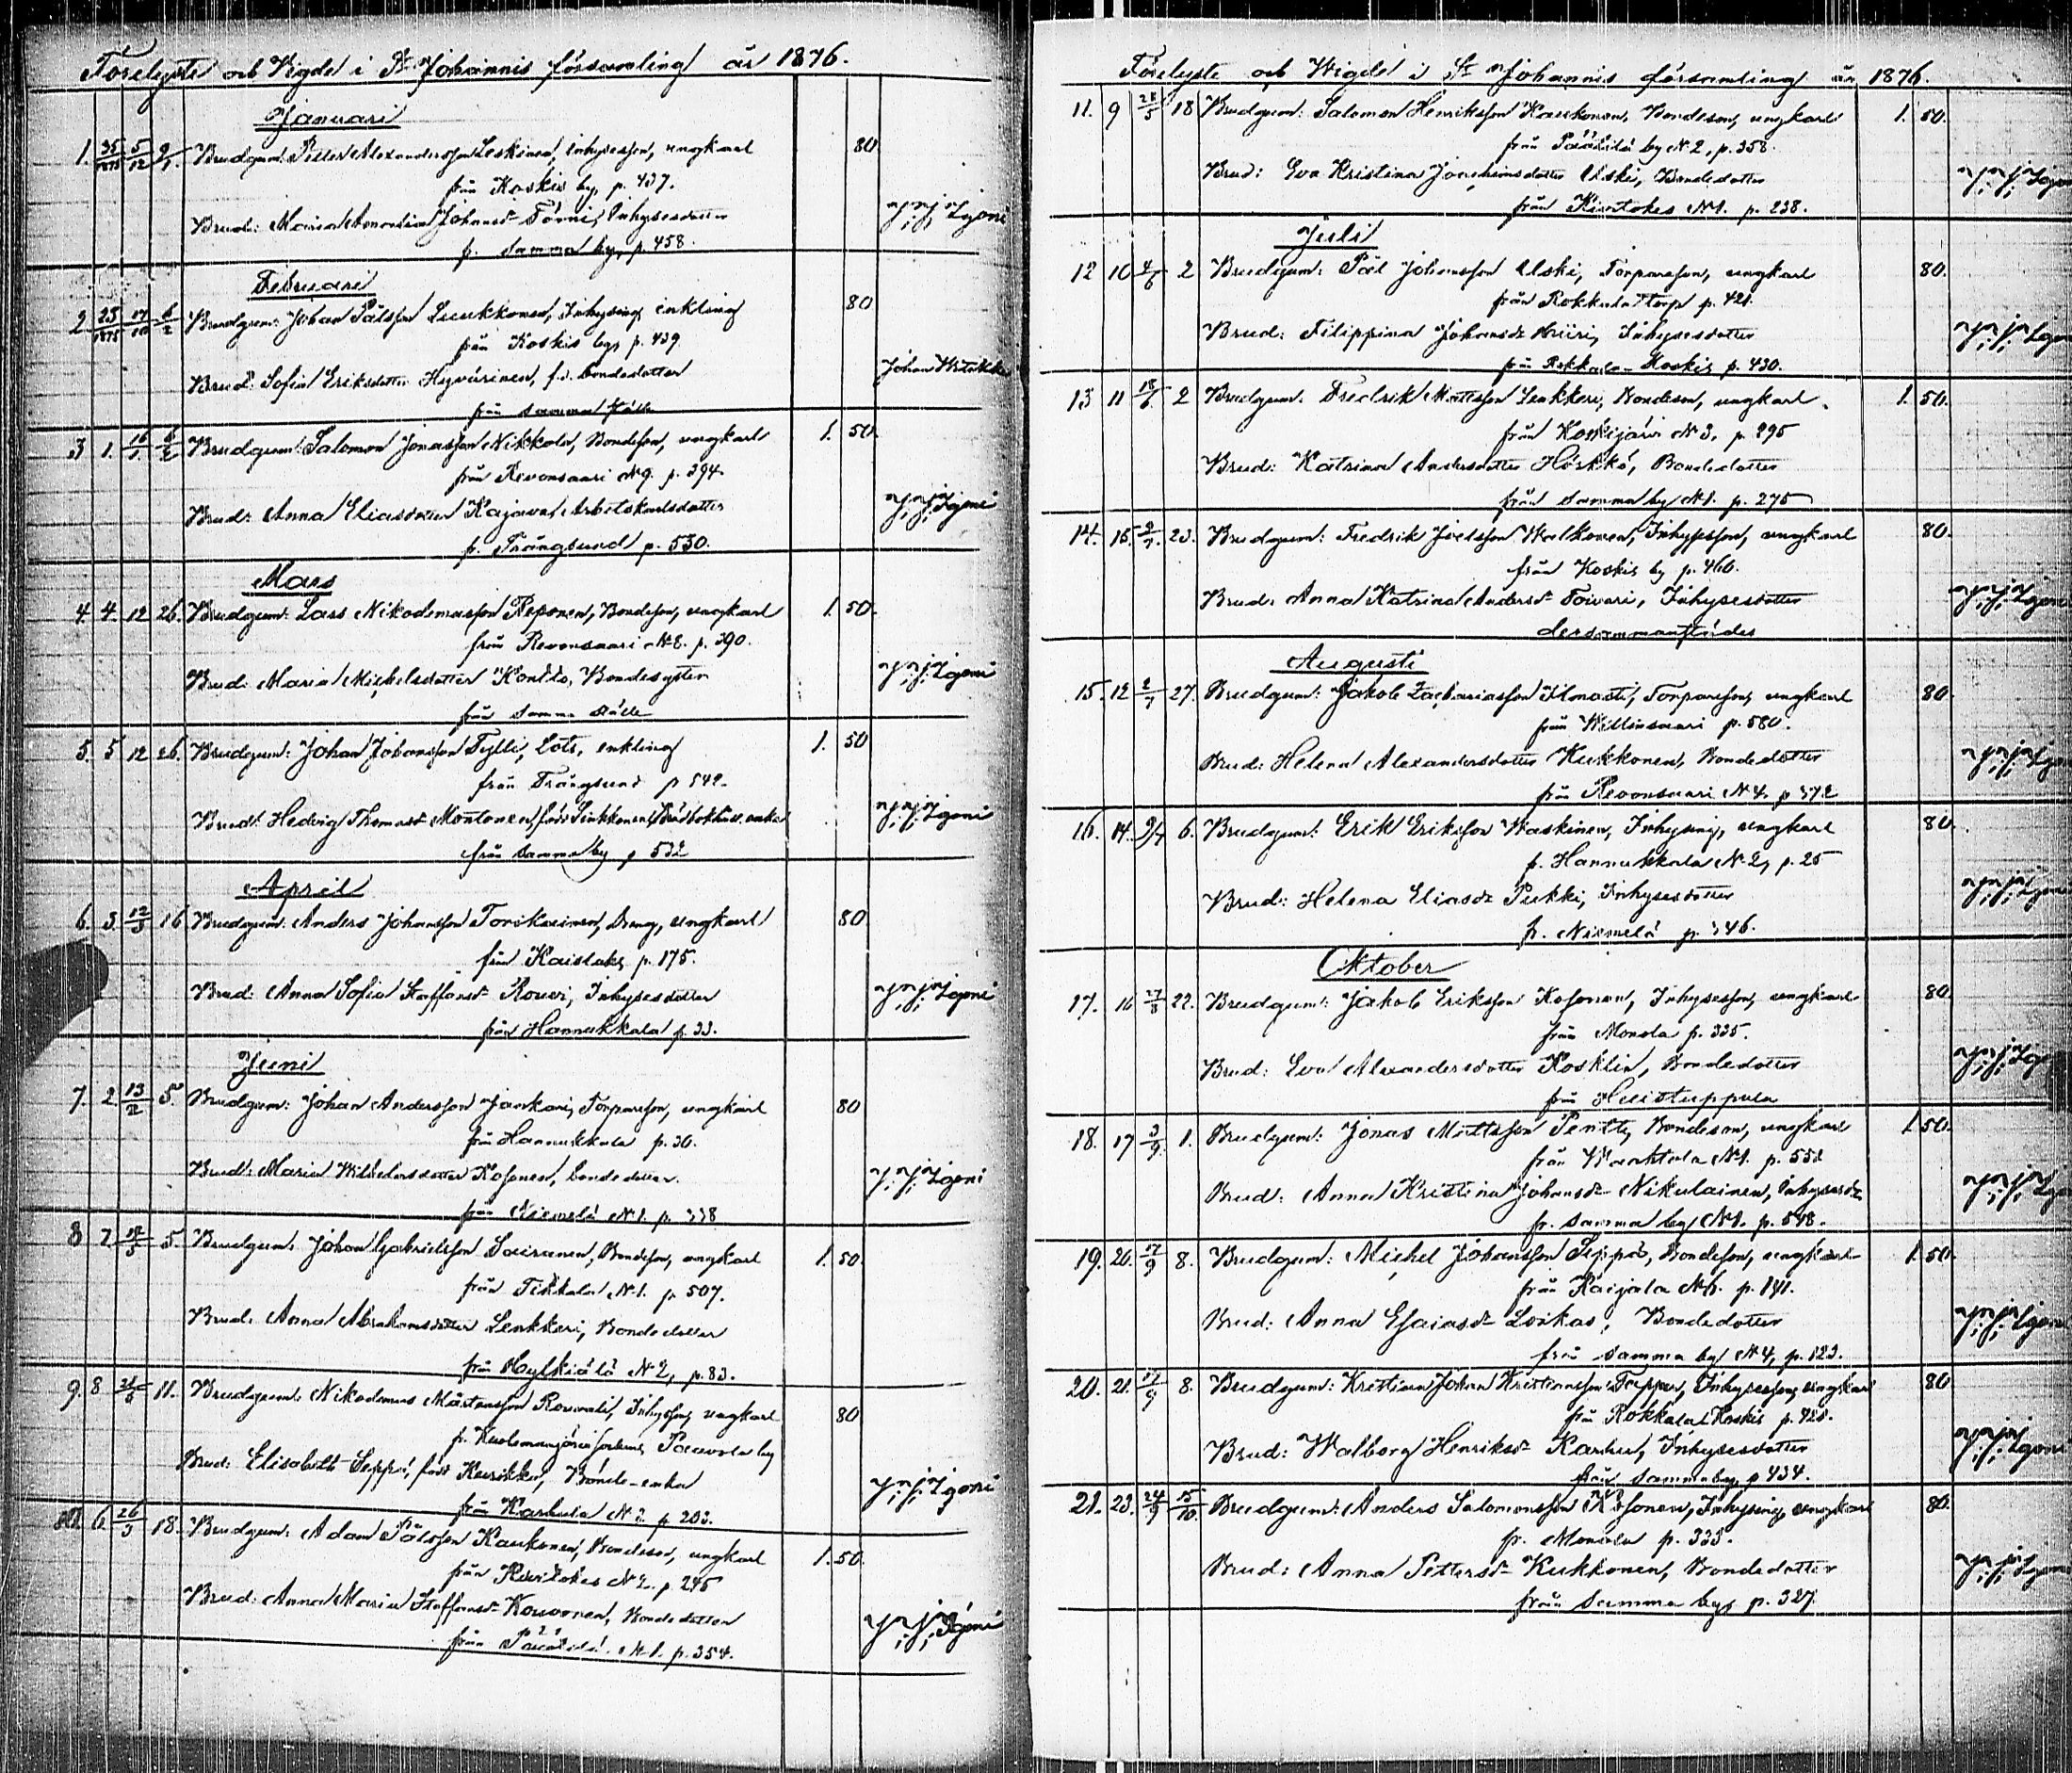 Förelyste och Vigde i St Johannis församling år 1876.
Januari
1. 35/1875 5/12 9/1 Brudgum: Petter Alexandersson Leskinen, inhyseson, ungkarl 80
från Koskis by, p. 437.
Brud: Maria Johansd:r Törni, Inhysesdotter
fr. samma by, p. 458.
Februari
2 23/1875 17/10 6/2 Brudgum: Johan Pålsson Luukkonen, Inhysing enkling 80
från Koskis by, p. 439.
Brud: Sofia Eriksdotter Hyvärinen, f.d. bondedotter
från samma ställe
3 1. 16/1 6/2 Brudgum: Salomon Jonasson Nikkola, Bondeson, ungkarl 1. 50.
från Revonsaari N 9. p. 394.
Brud: Anna Eliasdotter Kajava, Arbetskarlsdotter
fr. Trångsund p. 530.
Mars
4. 4. 12 26. Brudgum: Lars Nikodemusson Reponen, Bondeson, ungkarl 1. 50.
från Revonsaari N 8. p. 390.
Brud: Maria Michelsdotter Kontto, Bondesyster
från samma ställe
5. 5 12 26. Brudgum: Johan Johansson Tylli, Lots, enkling 1. 50
från Trångsund p 542.
Brud: Hedvig Thomasd:r Montonen, född Sinkkonen, enka
från samma by p 532
April
6. 3. 12/3 16 Brudgum: Anders Johansson Torikainen, Dreng, ungkarl 80
från Kaislaks p. 175.
Brud: Anna Sofia Staffansd:r Rouvi, Inhysesdotter
från Hannukkala p. 33.
Juni
7. 2. 13/2 5. Brudgum: Johan Andersson Jankari, Torpareson, ungkarl 80
från Hannukkala p. 30.
Brud: Maria Wilhelmsdotter Kosonen, bondedotter.
från Niemelä N 1. p. 338
8 7. 14/5 5. Brudgum: Johan Gabrielsson Sairanen, Bondeson, ungkarl 1. 50.
från Tikkala N 1. p. 507.
Brud: Anna Abrahamsdotter Lenkkeri, Bondedotter
från Hylkiälä N 2, p. 83.
9. 8 21/5 11. Brudgum: Nikodemus Mårtensson Rouvali, Inhyseson, ungkarl 80
fr. Kuolemanjärvi sockens Paavola by
Brud: Elisabeth Seppä, född Kurikka, Bonde-enka
från Karhula N 3. p 203.
10. 6. 26/3 18. Brudgum: Adam Pålsson Kaukonen, Bondeson, ungkarl 1. 50.
från Kirjolaks N 2. p. 245
Brud: Anna Maria Staffansd:r Kouvonen, Bondedotter
från N 1. p. 354.
Förelyste och Wigde i St Johannis församling år 1876.
11. 9 28/5 18 Brudgum: Salomon Henriksson Kaukonen, Bondeson, ungkarl 1. 50.
från Päätilä by N 2, p. 358.
Brud: Eva Kristina Joachimsdotter Uski, Bondedotter
från N 1. p. 238.
Juli
12 10 4/6 2 Brudgum: Pål Johansson Uski, Torpareson, ungkarl 80.
från Rokkala Torp p. 421.
Brud: Filippina Johansd:r Hiiri, Inhysesdotter
från Rokkala-Koskis p. 430.
13 11 18/6. 2 Brudgum: Fredrik Mattsson Lenkkeri, Bondeson, ungkarl. 1. 50.
från Koskijärvi N 3. p. 295
Brud: Katrina Andersdotter Hörkkö, Bondedotter
från samma by N 1. p. 275
14. 15. 9/7. 23. Brudgum: Fredrik Joelsson Walkonen, Inhyseson, ungkarl 80.
från Koskis by p. 460.
Brud: Anna Katrina Andersd:r Toivari, Inhysesdotter
dersammanstädes
Augusti
15. 12 2/7 27. Brudgum: Jakob Zachariasson Ilonasti, Torpareson, ungkarl 80.
från Willinsaari p. 580.
Brud: Helena Alexandersdotter Kukkonen, Bondedotter
från Revonsaari N 4. p 372
16. 14. 9/7 6. Brudgum: Erik Eriksson Waskinen, Inhysing, ungkarl 80.
fr. Hannukkala N 2, p. 25
Brud: Helena Eliasd:r Pukki, Inhysesdotter
fr. Niemelä p. 346.
Oktober
17. 16 27/8 22. Brudgum: Jakob Eriksson Kosonen, Inhyseson, ungkarl 80.
från Monola p. 335.
Brud: Eva Alexandersdotter Kosklin, Bondedotter
från Huistuppula
18. 17 3/9. 1. Brudgum: Jonas Mattsson Pentti, Bondeson, ungkarl 1. 50.
från Waahtola N 1. p. 552
Brud: Anna Kristina Johansd:r Nikulainen, Inhysesd:r
fr. samma by N 1. p. 548.
19. 20. 17/9 8. Brudgum: Michel Johansson Seppä, Bondeson, ungkarl 1. 50.
från Kaijala N 6. p. 141.
Brud: Anna Esaiasd:r Loikas, Bondedotter
från samma by N 4, p. 123.
20. 21. 17/9 8. Brudgum: Kristian Johan Kristiansson Tapper, Inhyseson, ungkarl 80
från Rokkala Koskis p. 428.
Brud: Walborg Henriksd:r Karhu, Inhysesdotter
från samma by, p 434.
21. 23. 24/9 15/10 Brudgum: Anders Salomonsson Kosonen, Inhysing, ungkarl 80.
fr. Monola p. 333.
Brud: Anna Pettersd:r Kukkonen, Bondedotter
från samma by, p. 327.